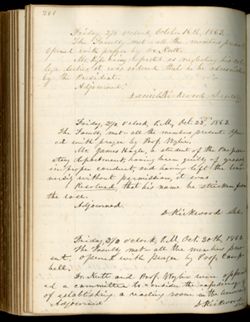 Friday, 2½ o'clock, October 16th, 1863.
The Faculty met all the members present.
Opened with prayer by Dr. Nutt.
Mr. being reported as neglecting his col
lege duties it was ordered that he be admonished
by the President.
Adjourned.
Daniel Kirkwood Secretary
Friday, 2½ o'clock, P.M., Oct. 23d, 1863.
The Faculty met all the members present. Open
ed with prayer by Prof. Wylie.
Mr. James a student of the Prepara
tory Department, having been guilty of gross
improper conduct, and having left the Uni
versity without permission, it was
Resolved, that his name be stricken from
the roll.
Adjourned.
D. Kirkwood Sec.
Friday, 2½ o'clock, P.M. Oct. 30th 1863.
The Faculty met all the members pres
ent. Opened with prayer by Prof. Camp
bell.
Dr. Nutt and Prof. Wylie were appoint
ed a committee to consider the expediency
of establishing a reading room in the
Adjourned
D. Kirkwood